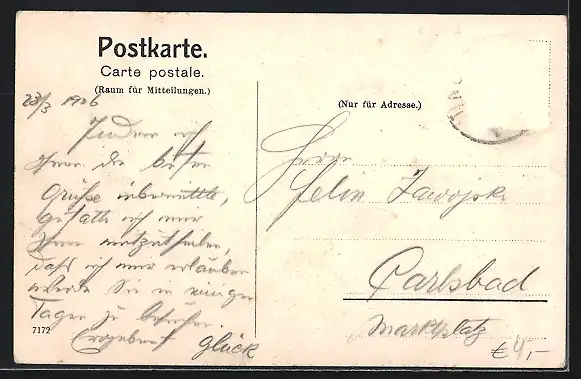 Postkarte.
Carte postale.
(Raum für Mitteilungen.)
23/3 1906
Indem ich
Ihnen die besten
Grüße übermittle,
gestatte ich mir
Ihnen mitzutheilen,
daß ich mir erlauben
werde Sie in einigen
Tagen zu besuchen.
Ergebenst Glück
7172
(Nur für Adresse.)
Herrn
Felix Zawojski
Carlsbad
Marktplatz
€ 4,-